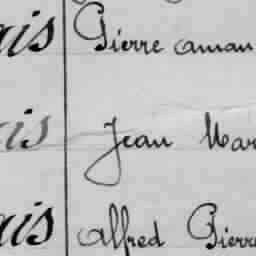 ais Pierre aman
ais Jean Mar
ais Alfred Pierre